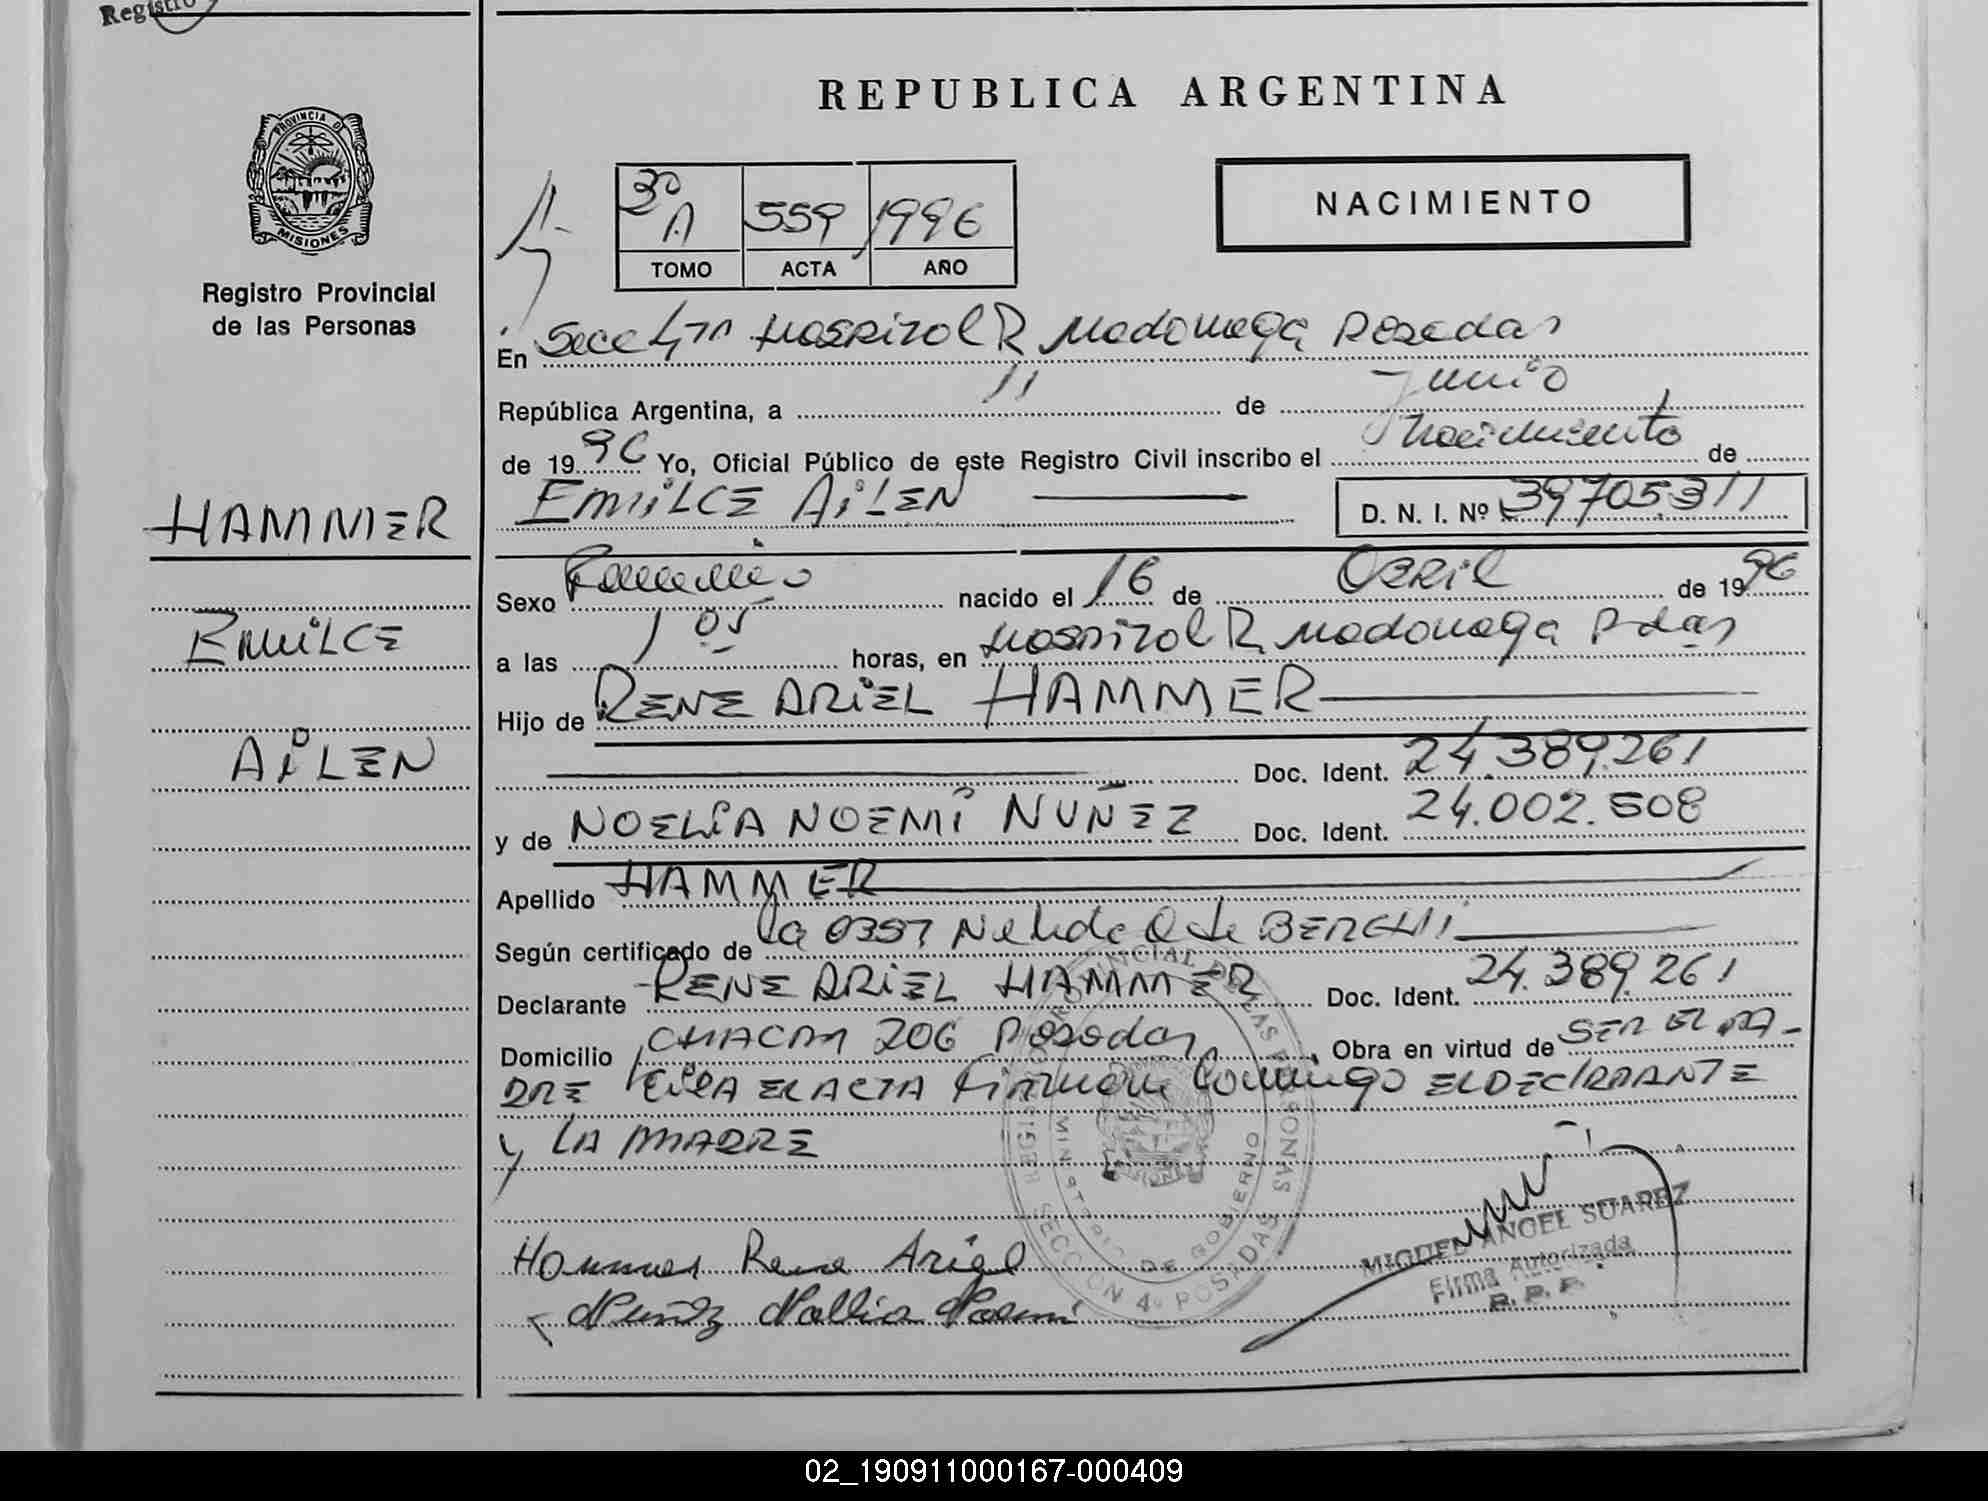 Registro
REPUBLICA ARGENTINA
PROVINCIA DE
MISIONES
Registro Provincial
de las Personas
3º
A 559 1996
TOMO ACTA AÑO
NACIMIENTO
En Secc 4ta Hospital R Madariaga Posadas
República Argentina, a 11 de Junio
de 1996 Yo, Oficial Público de este Registro Civil inscribo el Nacimiento de
HAMMER
EMILCE AILEN
D. N. I. Nº 39705311
Sexo Femenino nacido el 16 de Abril de 1996
EMILCE
a las 1 05 horas, en Hospital R Madariaga Pdas
Hijo de RENE ARIEL HAMMER
AILEN
Doc. Ident. 24.389.261
y de NOELIA NOEMI NUÑEZ Doc. Ident. 24.002.508
Apellido HAMMER
Según certificado de la 0397 Nelida de BERGHI
Declarante RENE ARIEL HAMMER Doc. Ident. 24.389.261
Domicilio CHACRA 206 Posadas, Obra en virtud de SER EL PA-
DRE LEIDA EL ACTA firman Conmigo EL DECLARANTE
y LA MADRE
REGISTRO PROVINCIAL DE LAS PERSONAS
MINISTERIO DE GOBIERNO
SECCION 4ª POSADAS
Hammer Rene Ariel
Nuñez Noelia Noemi
MIGUEL ANGEL SUAREZ
Firma Autorizada
R. P. P.
02_190911000167-000409